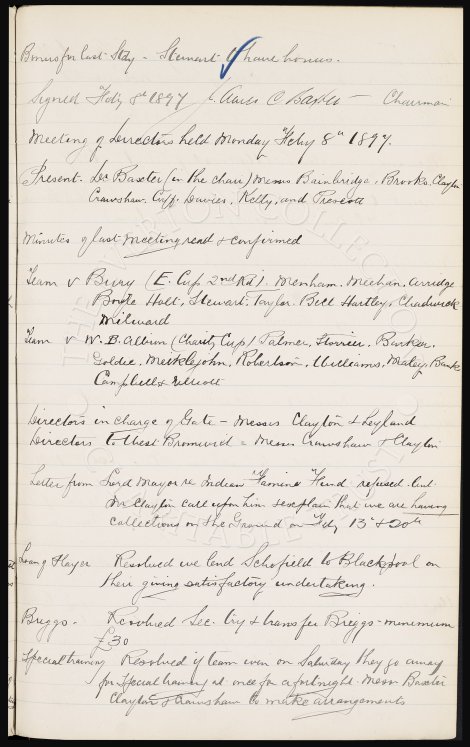 Bonus for last Stdy - Stewart to have bonus.
Signed Feby 8th 1897 James C Baxter - Chairman
Meeting of Directors held Monday Feby 8th 1897.
Present. Dr Baxter (in the chair) Messrs Bainbridge, Brooks, Clayton
Crawshaw, Cuff, Davies, Kelly, and Prescott
Minutes of last Meeting read & confirmed
Team v Bury (E. Cup 2nd Rd). Menham, Meehan, Arridge
Boyle Holt, Stewart, Taylor Bell Hartley, Chadwick
Milward
Team v W. B. Albion (Charity Cup) Palmer, Storrier, Barker,
Goldie, Meiklejohn, Robertson, Williams, Maley, Banks
Campbell & Elliott
Directors in charge of Gate - Messrs Clayton & Leyland
Directors to West Bromwich = Messrs Crawshaw & Clayton
Letter from Lord Mayor re Indian Famine Fund refused but
Mr Clayton call upon him & explain that we are having
collections on the Ground on Feby 13th & 20th
Loan of Player Resolved we lend Schofield to Blackpool on
their giving satisfactory undertaking.
Briggs - Resolved Sec. try & transfer Briggs - minimum
£30
Special training Resolved if team win on Saturday they go away
for special training at once for a fortnight. Messrs Baxter
Clayton & Crawshaw to make arrangements
THE EVERTON COLLECTION
CHARITABLE TRUST